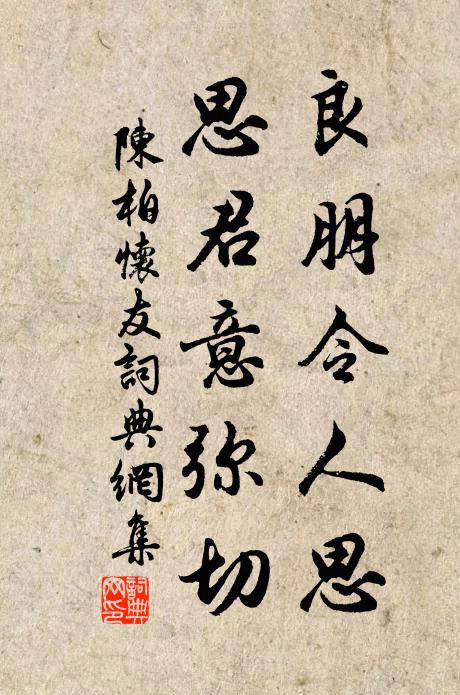 良朋令人思
思君意弥切
陳柏懷友詞典網集
詞典网印